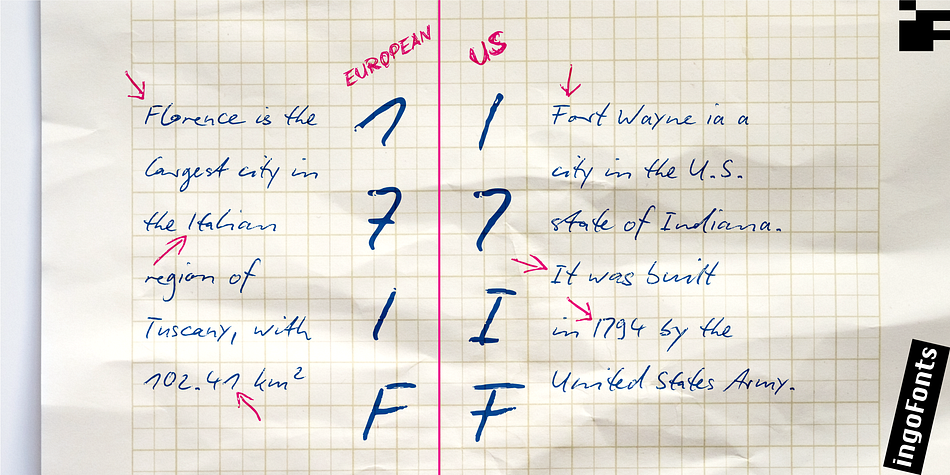 EUROPEAN
US
Florence is the
largest city in
the Italian
region of
Tuscany, with
102.41 km²
1
7
I
F
1
7
I
F
Fort Wayne ia a
city in the U.S.
state of Indiana.
It was built
in 1794 by the
United States Army.
ingoFonts